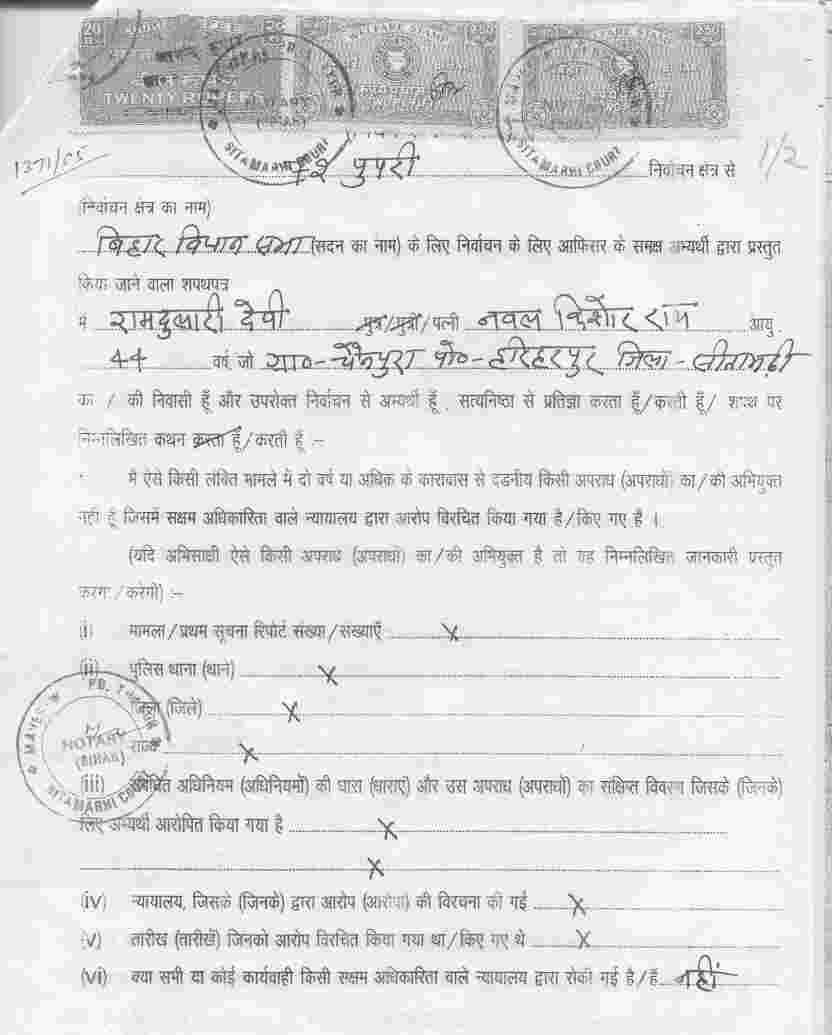 TWENTY RUPEES
WELFARE STAMP
SITAMARHI COURT
SITAMARHI COURT
1371/05
1/2
पुपरी निर्वाचन क्षेत्र से
(निर्वाचन क्षेत्र का नाम)
बिहार विधान सभा (सदन का नाम) के लिए निर्वाचन के लिए आफिसर के समक्ष अभ्यर्थी द्वारा प्रस्तुत
किया जाने वाला शपथपत्र
मैं रामदुलारी देवी पुत्र/पुत्री/पत्नी नवल किशोर राय आयु
44 वर्ष, जो ग्रा०-चैनपुरा पो०-हरिहरपुर जिला-सीतामढ़ी
का / की निवासी हूँ और उपरोक्त निर्वाचन से अभ्यर्थी हूँ, सत्यनिष्ठा से प्रतिज्ञा करता हूँ/करती हूँ/ शपथ पर
निम्नलिखित कथन करता हूँ/करती हूँ :-
मैं ऐसे किसी लंबित मामले में दो वर्ष या अधिक के कारावास से दंडनीय किसी अपराध (अपराधों) का/की अभियुक्त
नहीं हूँ जिसमें सक्षम अधिकारिता वाले न्यायालय द्वारा आरोप विरचित किया गया है/किए गए है ।
(यदि अभिसाक्षी ऐसे किसी अपराध (अपराधों) का/की अभियुक्त है तो वह निम्नलिखित जानकारी प्रस्तुत
करेगा/करेगी) :-
(i) मामला/प्रथम सूचना रिपोर्ट संख्या/संख्याएँ X
(ii) पुलिस थाना (थाने) X
जिला (जिले) X
राज्य X
NOTARY
(BIHAR)
SITAMARHI COURT
(iii) संबंधित अधिनियम (अधिनियमों) की धारा (धाराएं) और उस अपराध (अपराधों) का संक्षिप्त विवरण जिसके (जिनके)
लिए अभ्यर्थी आरोपित किया गया है X
X
(iv) न्यायालय, जिसके (जिनके) द्वारा आरोप (आरोपों) की विरचना की गई X
(v) तारीख (तारीखें) जिनको आरोप विरचित किया गया था/किए गए थे X
(vi) क्या सभी या कोई कार्यवाही किसी सक्षम अधिकारिता वाले न्यायालय द्वारा रोकी गई है/हैं नहीं